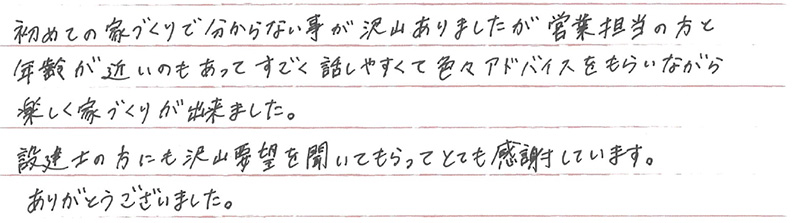 初めての家づくりで分からない事が沢山ありましたが営業担当の方と
年齢が近いのもあってすごく話しやすくて色々アドバイスをもらいながら
楽しく家づくりが出来ました。
設建士の方にも沢山要望を聞いてもらってとても感謝しています。
ありがとうございました。